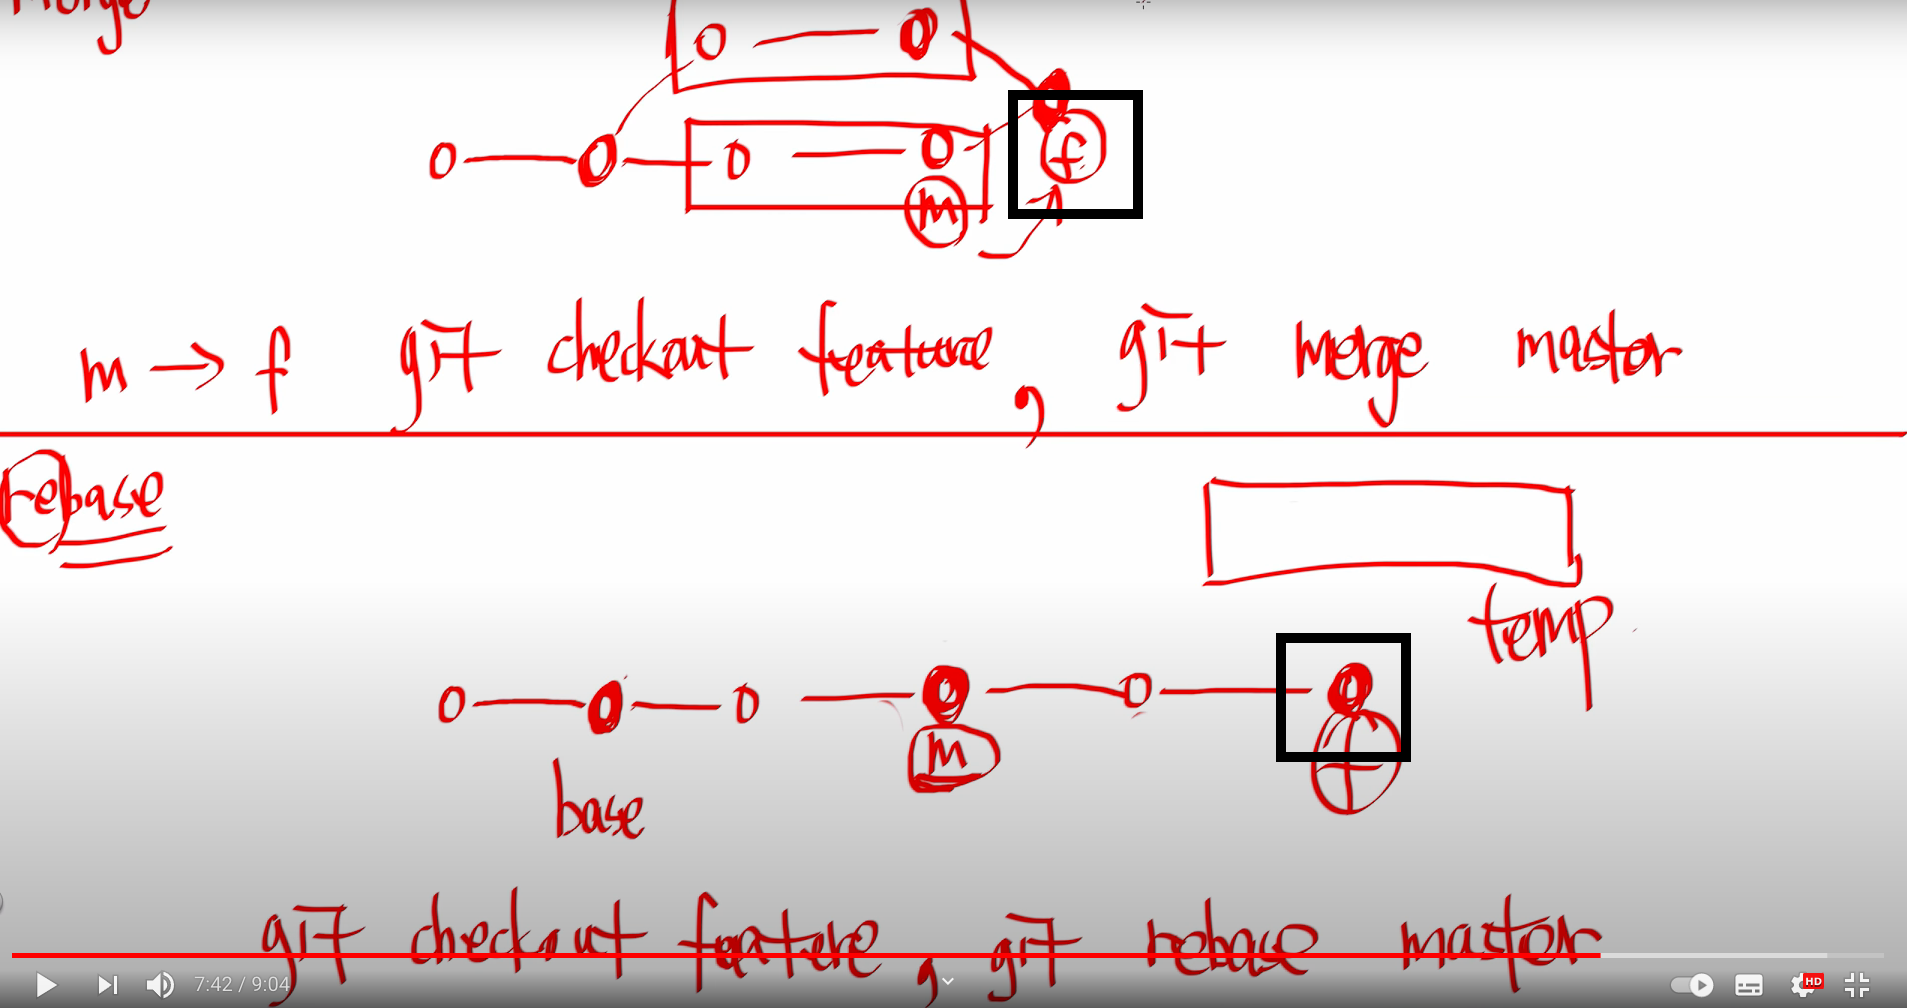 Merge
f
m
m → f git checkout feature, git merge master
rebase
temp
m
f
base
git checkout feature, git rebase master
7:42 / 9:04
HD